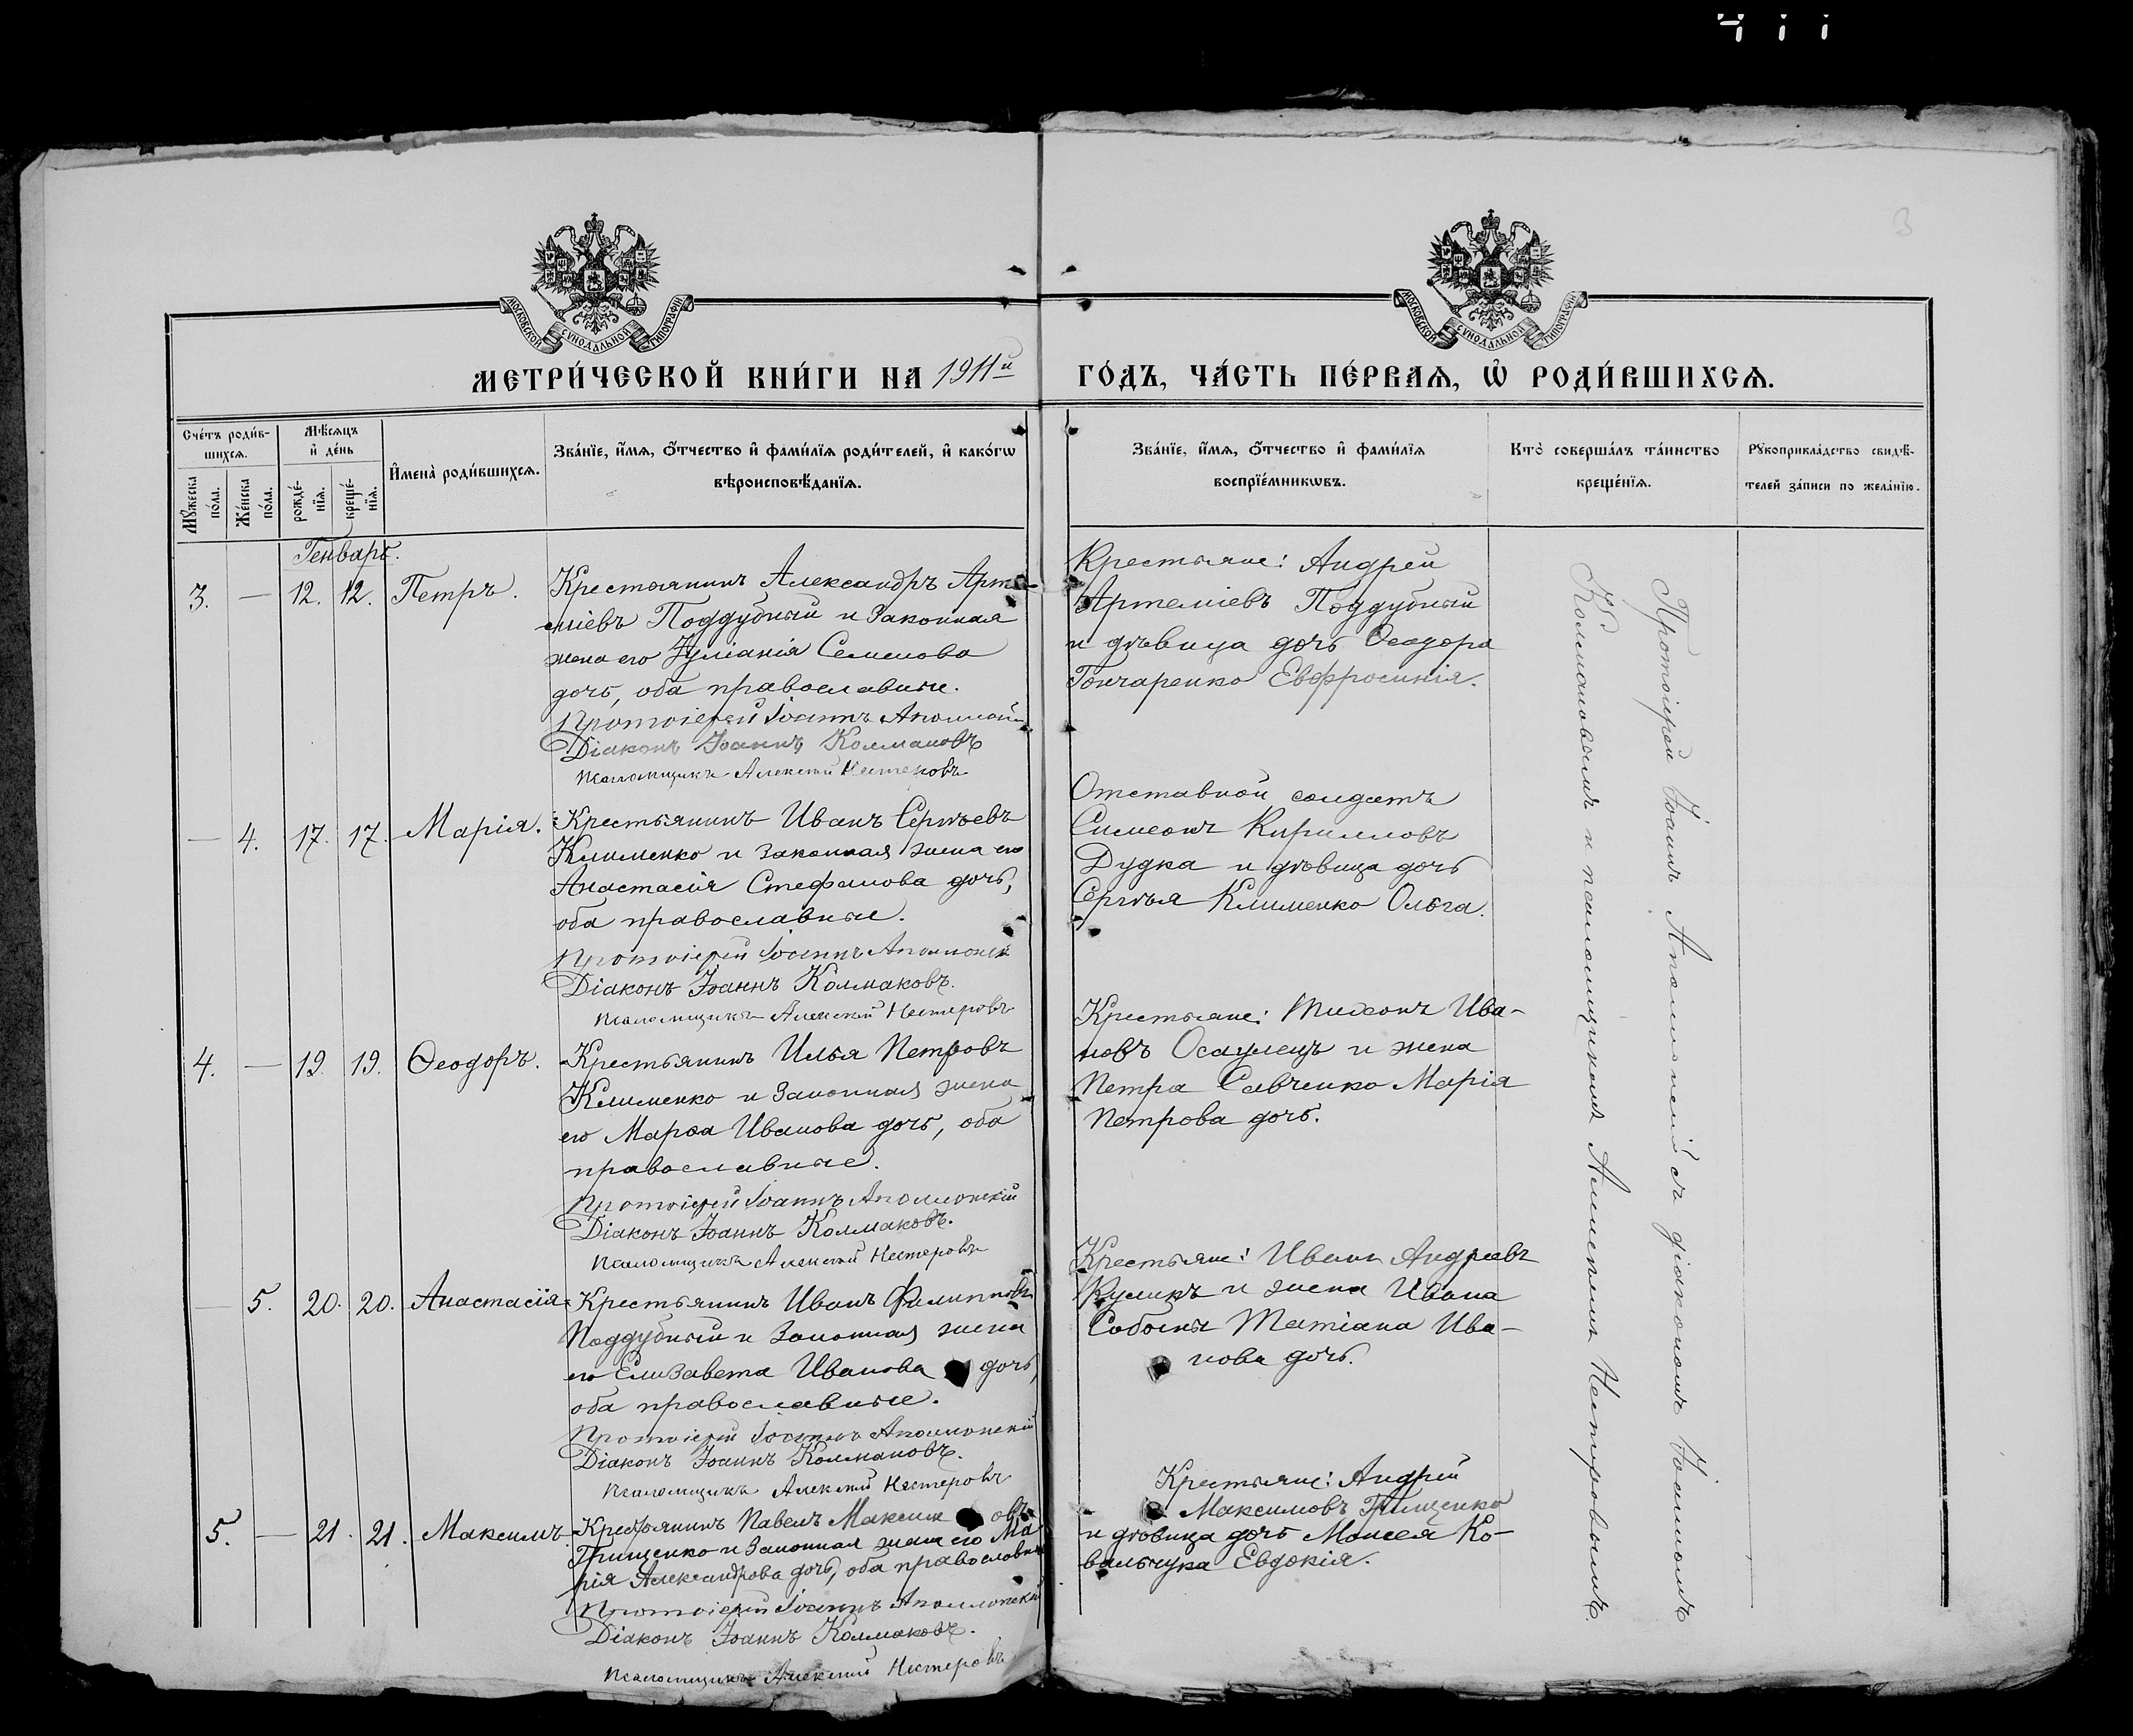 3
МОСКОВСКОЙ СѴНОДАЛЬНОЙ ТИПОГРАФІИ
МОСКОВСКОЙ СѴНОДАЛЬНОЙ ТИПОГРАФІИ
МЕТРИ́ЧЕСКОЙ КНИ́ГИ НА 1911й ГО́ДЪ, ЧА́СТЬ ПЕ́РВАѦ, Ѡ҆ РОДИ́ВШИХСѦ.
Сче́тъ роди́в-
шихсѧ.
Мѣ́сѧцъ
и҆ де́нь
Мꙋ́жеска
по́ла.
Же́нска
по́ла.
рожде́-
нїѧ.
креще́-
нїѧ.
И҆мена̀ роди́вшихсѧ.
Зва́нїе, и҆́мѧ, ѻ҆́тчество и҆ фами́лїѧ роди́телей, и҆ како́гѡ
вѣроисповѣ́данїѧ.
Зва́нїе, и҆́мѧ, ѻ҆́тчество и҆ фами́лїѧ
воспрїе́мникѡвъ.
Кто̀ соверша́лъ та́инство
креще́нїѧ.
Рꙋкоприкла́дство свидѣ́-
телей за́писи по жела́нїю.
Генварь.
3. — 12. 12. Петръ.
Крестьянинъ Александръ Арте-
міевъ Поддубный и законная
жена его Іуліанія Семенова
дочь, оба православные.
Протоіерей Іоаннъ Аполлонскій
Діаконъ Іоаннъ Колмаковъ
Псаломщикъ Алексій Нестеровъ
Крестьяне: Андрей
Артеміевъ Поддубный
и дѣвица дочь Ѳеодора
Гончаренко Евфросинія.
— 4. 17. 17. Марія.
Крестьянинъ Иванъ Сергѣевъ
Клименко и законная жена его
Анастасія Стефанова дочь,
оба православные.
Протоіерей Іоаннъ Аполлонскій
Діаконъ Іоаннъ Колмаковъ.
Псаломщикъ Алексій Нестеровъ
Отставной солдатъ
Симеонъ Кирилловъ
Дудка и дѣвица дочь
Сергѣя Клименко Ольга.
4. — 19. 19. Ѳеодоръ.
Крестьянинъ Илья Петровъ
Клименко и законная жена
его Марѳа Иванова дочь, оба
православные.
Протоіерей Іоаннъ Аполлонскій
Діаконъ Іоаннъ Колмаковъ.
Псаломщикъ Алексій Нестеровъ
Крестьяне: Тихонъ Ива-
новъ Осаулецъ и жена
Петра Савченко Марія
Петрова дочь.
— 5. 20. 20. Анастасія
Крестьянинъ Иванъ Филипповъ
Поддубный и законная жена
его Елизавета Иванова дочь,
оба православные.
Протоіерей Іоаннъ Аполлонскій
Діаконъ Іоаннъ Колмаковъ.
Псаломщикъ Алексій Нестеровъ
Крестьяне: Иванъ Андреевъ
Куликъ и жена Ивана
Татіана Ива-
нова дочь.
5. — 21. 21. Максимъ
Крестьянинъ Павелъ Максимовъ
Грищенко и законная жена его Ма
рія Александрова дочь, оба православные
Протоіерей Іоаннъ Аполлонскій
Діаконъ Іоаннъ Колмаковъ.
Псаломщикъ Алексій Нестеровъ
Крестьяне: Андрей
Максимовъ Грищенко
и дѣвица дочь Моисея Ко-
вальчука Евдокія.
Протоіерей Іоаннъ Аполлонскій съ діакономъ Іоанномъ
Колмаковымъ и псаломщикомъ Алексіемъ Нестеровымъ.